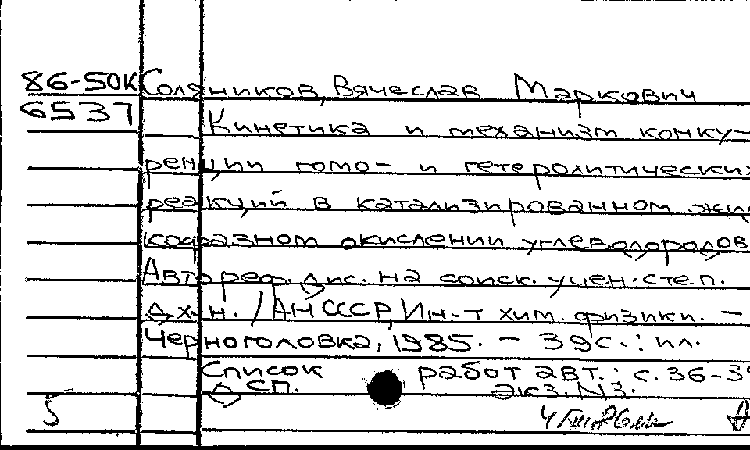 86-50К Соляников, Вячеслав Маркович
6537 Кинетика и механизм конку-
ренции гомо- и гетеролитических
реакций в катализированном жид
кофазном окислении углеводородов
Автореф. дис. на соиск. учен. степ.
д.х.н. / АН СССР, Ин-т хим. физики. –
Черноголовка, 1985. – 39 с. : ил.
Список работ авт.: с. 36-39
сп. экз. N3.
5